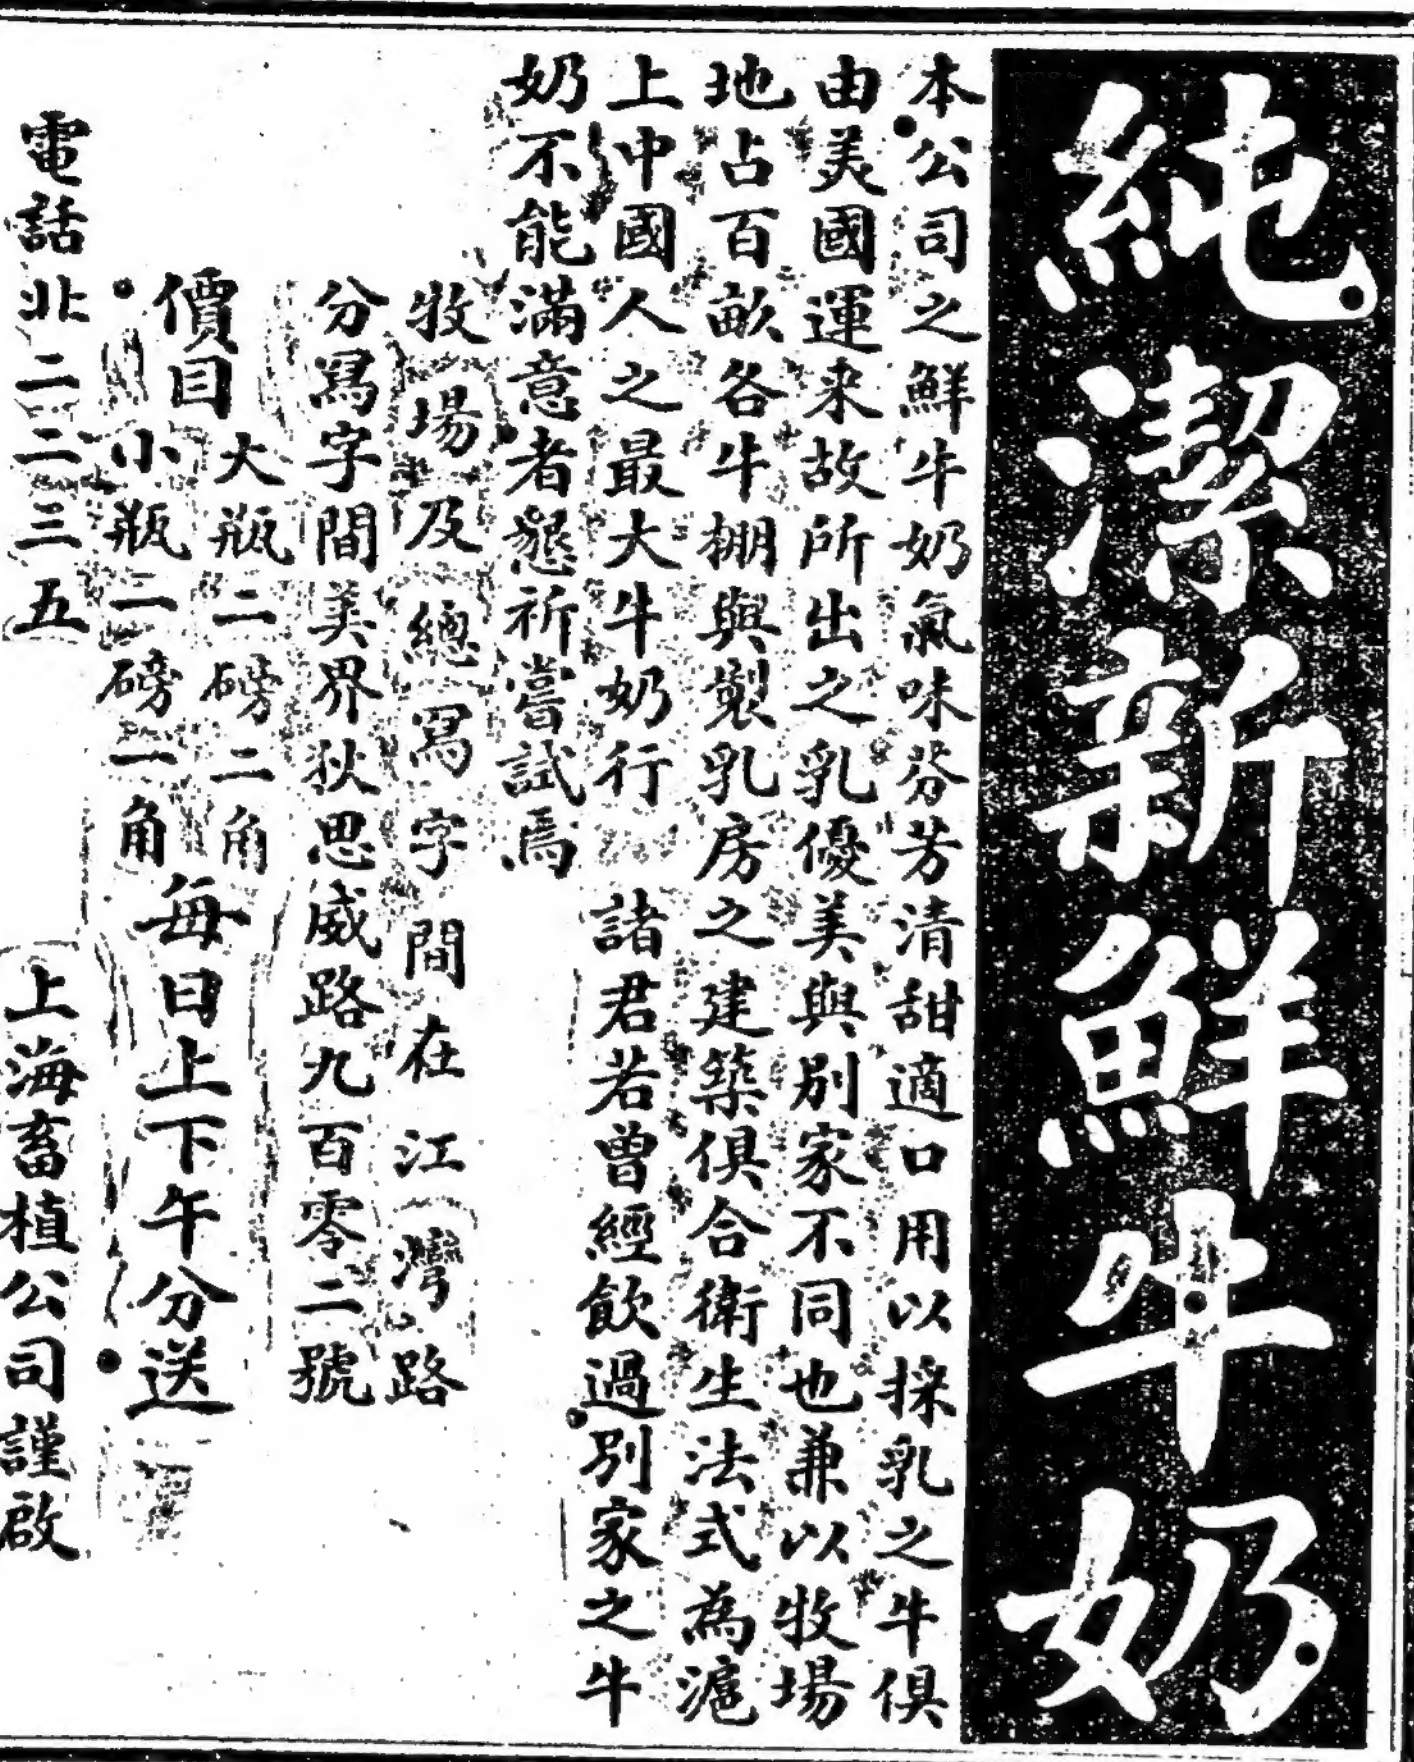 純潔新鮮牛奶
本公司之鮮牛奶氣味芬芳清甜適口用以採乳之牛俱
由美國運来故所出之乳優美與別家不同也兼以牧場
地占百畝各牛棚與製乳房之建築俱合衛生法式為滬
上中國人之最大牛奶行 諸君若曾經飲過別家之牛
奶不能滿意者懇祈嘗試焉
牧場及總寫字間在江灣路
分寫字間美界狄思威路九百零二號
價目
大瓶二磅二角
小瓶一磅一角
每日上下午分送
電話北二二三五
上海畜植公司謹啟